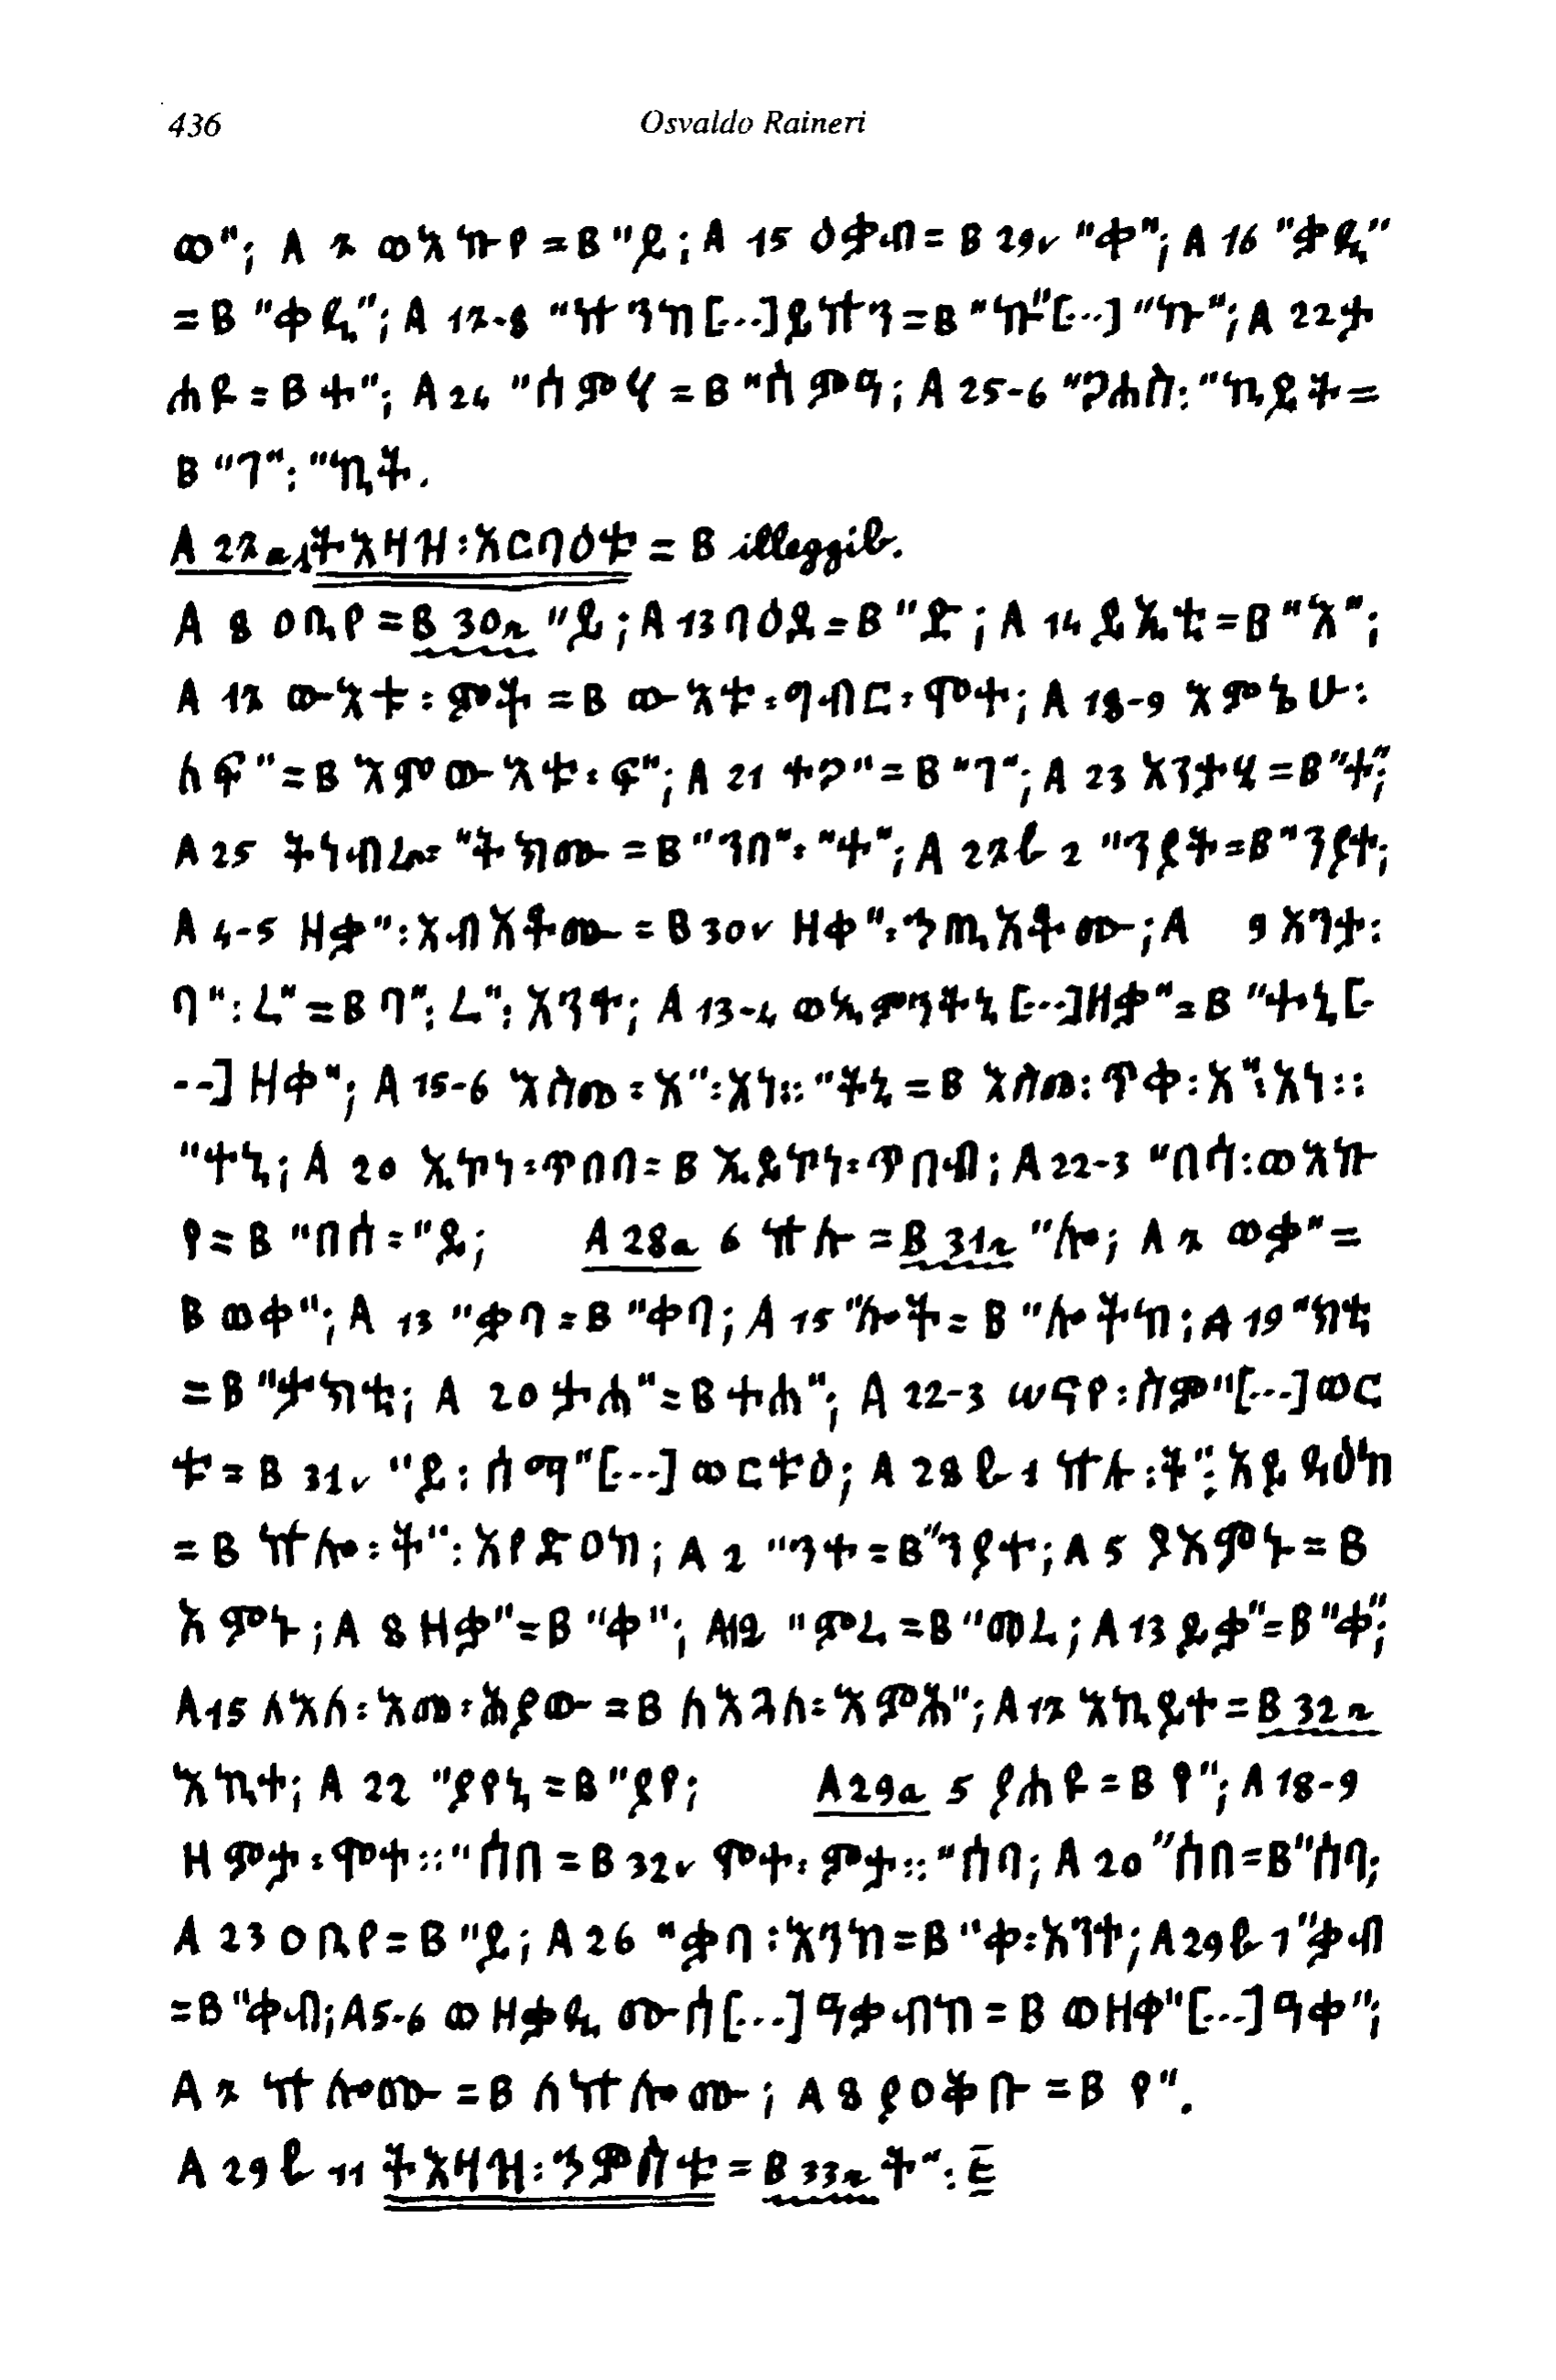 436 Osvaldo Raineri
ወ"; A 7 ወእኩየ = B "ይ; A 15 ዕቃብ = B 29v "ቀ"; A 16 "ቃዲ"
= B "ቀዲ"; A 17-8 "ኵንከ [...] ይኵን = B "ኩ" [...] "ኩ"; A 22 ታ
ሐዩ = B ተ"; A 24 "ሰምዣ = B "ሰምዓ; A 25-6 "ጋሐስ: "ኪይት =
B "ገ": "ኪት.
A 27a 1 ትእዛዝ : አርባዕቱ = B illeggib.
A 8 ዐቢየ = B 30r "ይ; A 13 ባዕዲ = B "ድ; A 14 ይእቲ = B "እ";
A 17 ውእቱ : ምት = B ውእቱ : ግብር : ሞተ; A 18-9 እምኔሁ:
ለፍ" = B እምውእቱ : ፍ"; A 21 ተጋ" = B "ገ"; A 23 አንታዣ = B "ተ";
A 25 ትነብሬ: "ትክሙ = B "ንበ": "ተ"; A 27b 2 "ንያት = B "ንያተ;
A 4-5 ዘቃ": አብአቶሙ = B 30v ዘቀ": ኃጢአቶሙ; A 9 አንታ:
ባ": ረ" = B ባ": ረ": አንተ; A 13-4 ወኢምንትኒ [...] ዘቃ" = B "ተኒ [-
--] ዘቀ"; A 15-6 እስመ : አ": አነ:: "ትኒ = B እስመ: ጥቀ: አ": አነ::
"ተኒ; A 20 ኢኮነ: ጥበበ = B ኢይኮነ: ጥበብ; A 22-3 "በሰ: ወእኩ
የ = B "በሰ: "ይ; A 28a 6 ኵሉ = B 31r "ሎ; A 7 ወቃ" =
B ወቀ"; A 13 "ቃባ = B "ቀባ; A 15 "ሎት = B "ሎትከ; A 19 "ክቲ
= B "ታክቲ; A 20 ታሐ" = B ተሐ"; A 22-3 ሠናየ : ስም" [...] ወር
ቱ = B 31v "ይ: ሰማ" [...] ወርቱዕ; A 28b 1 ኵሉ : ት": አይዳዕከ
= B ኵሎ : ት": አየድዐከ; A 2 "ንተ = B "ንያተ; A 5 ያአምኑ = B
አምኑ; A 8 ዘቃ" = B "ቀ"; A 12 "ምሪ = B "መሪ; A 13 ይቃ" = B "ቀ";
A 15 ለእለ : እመ : ሕያው = B ለእጓለ: እምሕ"; A 17 እኪይተ = B 32r
እኪተ; A 22 "ያየኒ = B "ያየ; A 29a 5 ያሐዩ = B የ"; A 18-9
ዘምታ : ሞተ :: "ሰበ = B 32v ሞተ: ምታ:: "ሰባ; A 20 "ሰበ = B "ሰባ;
A 23 ዐቢየ = B "ይ; A 26 "ቃበ : እንከ = B "ቀ: አንተ; A 29b 1 "ቃብ
= B "ቀብ; A 5-6 ወዘቃዲሙሰ [...] ዓቃብከ = B ወዘቀ" [...] ዓቀ";
A 7 ኵሎሙ = B ለኵሎሙ; A 8 ያዐቅቡ = B የ".
A 29b 11 ትእዛዝ : ኃምስቱ = B 33r ት": ፭